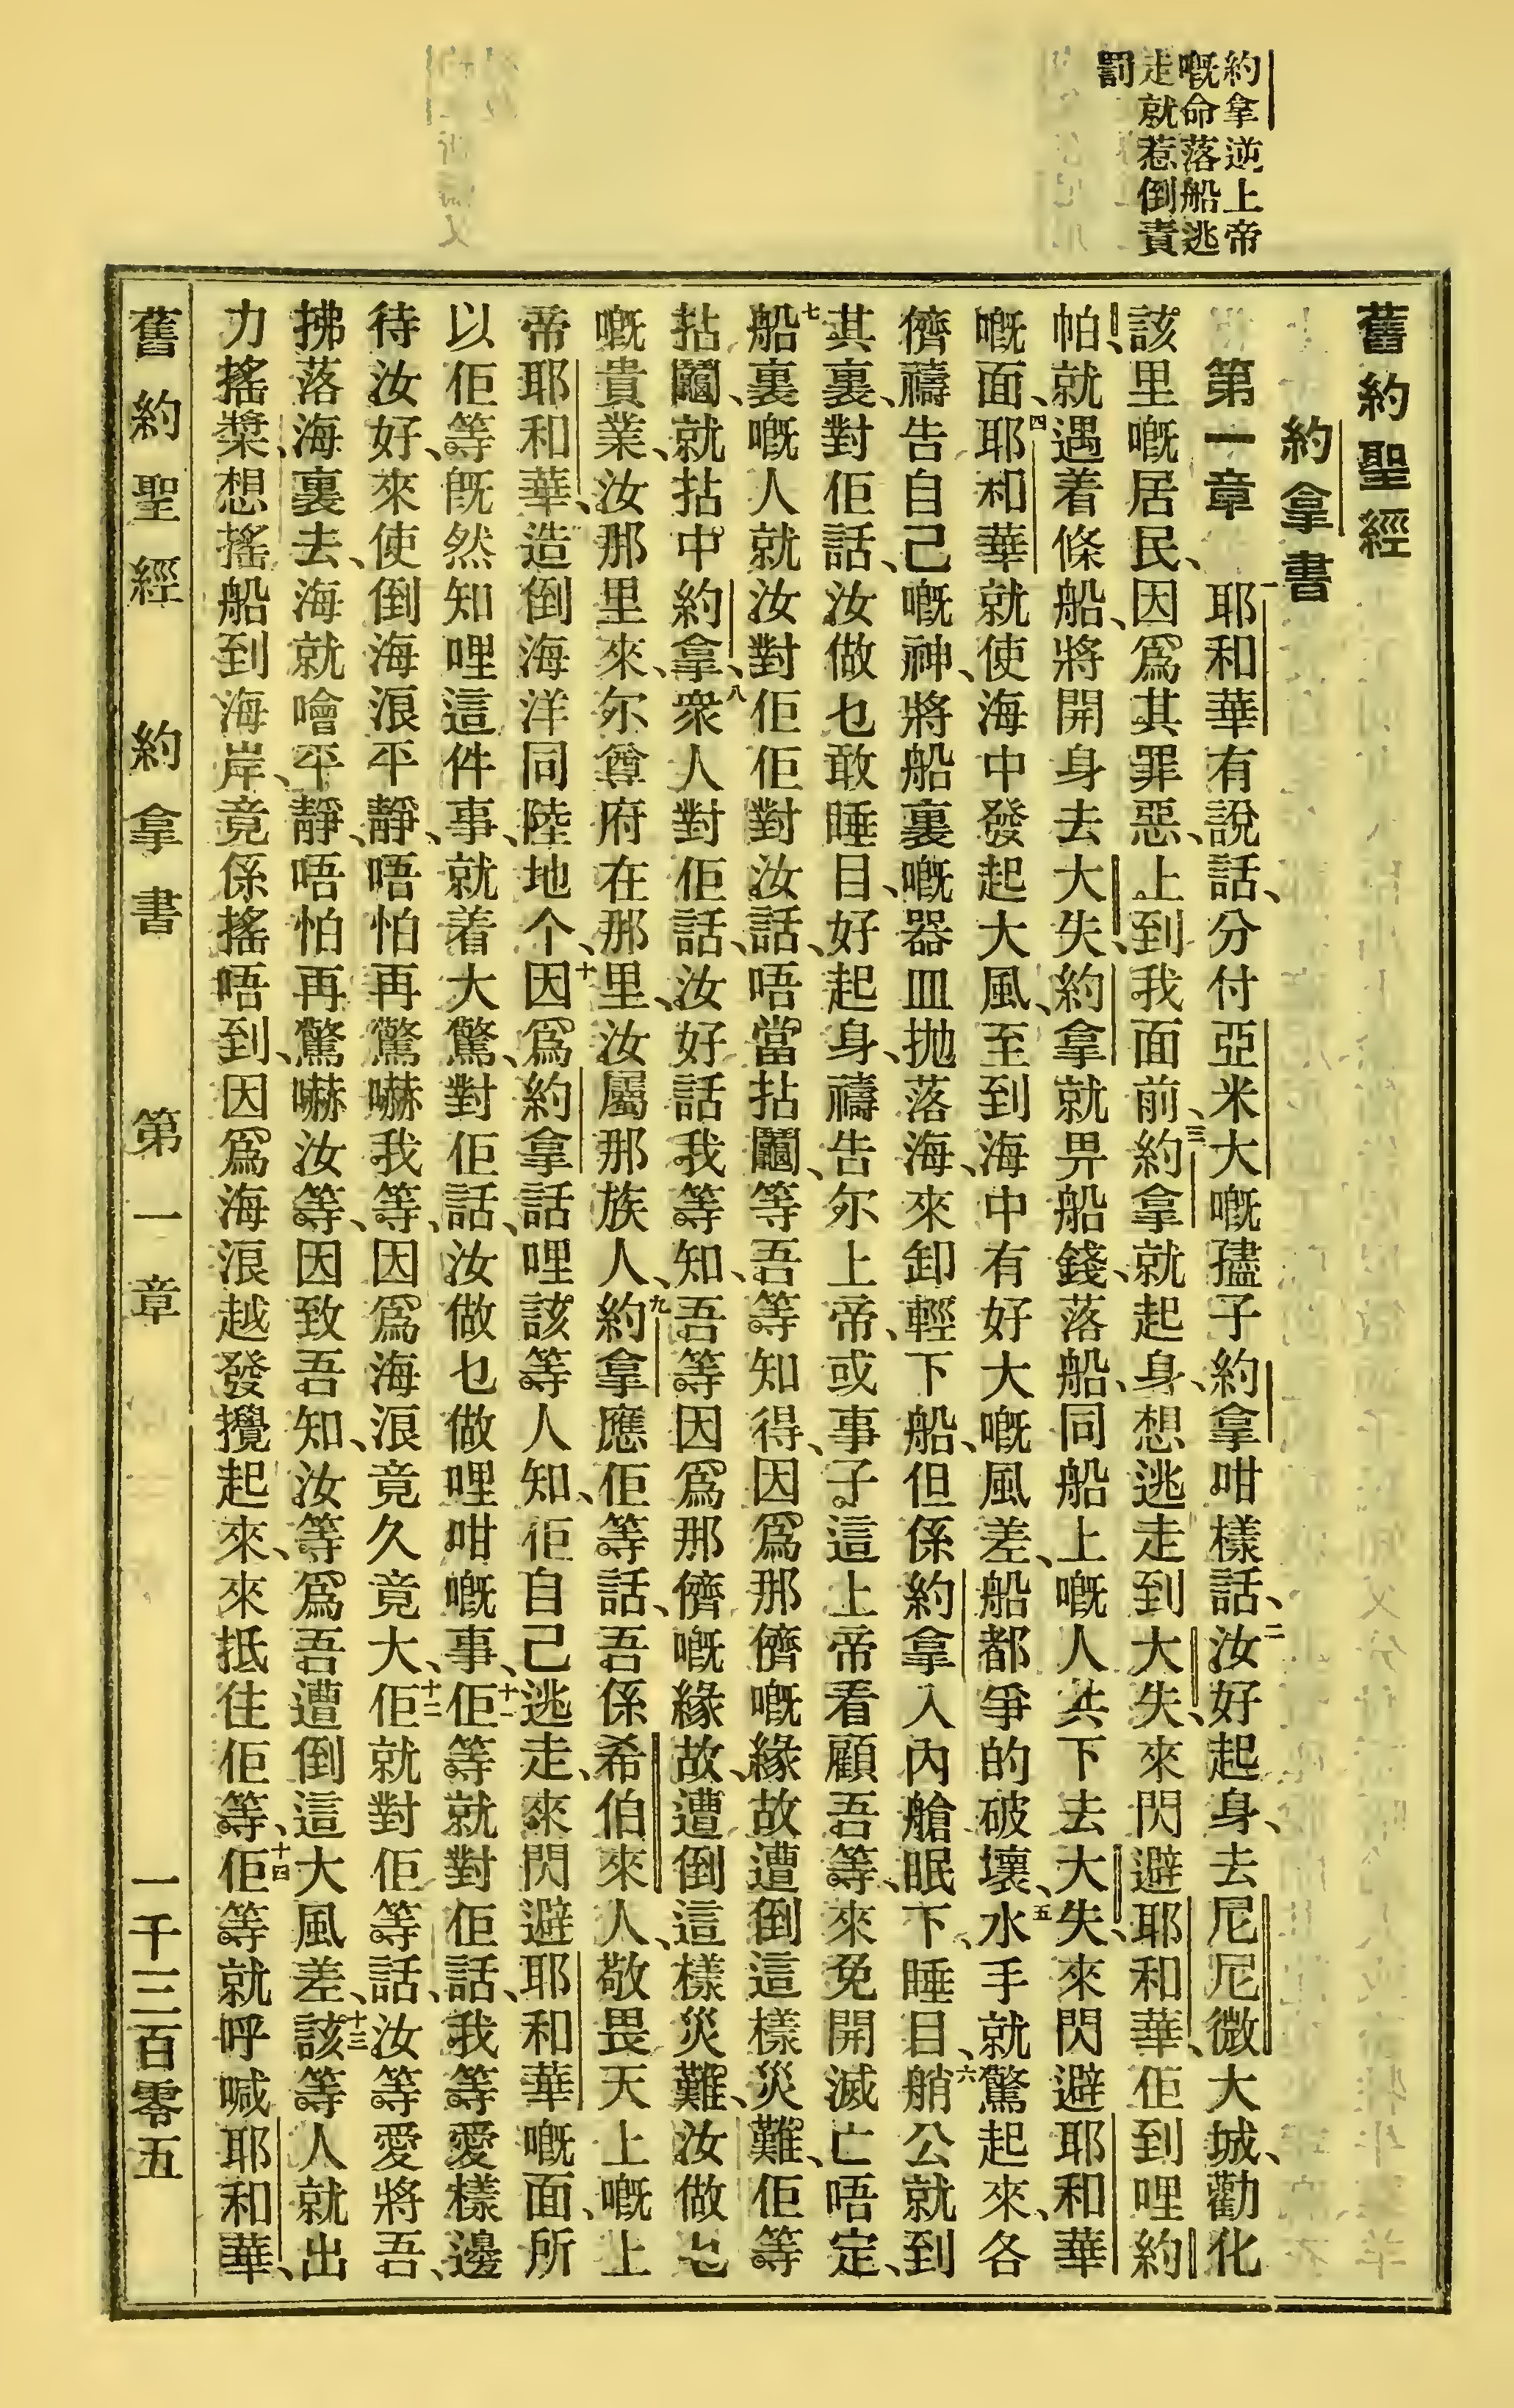 約拿逆上帝
嘅命落船逃
走就惹倒責
罰
舊約聖經
約拿書
第一章 一耶和華有說話、分付亞米大嘅孻子約拿咁樣話、二汝好起身、去尼尼微大城、勸化
該里嘅居民、因爲其罪惡、上到我面前、三約拿就起身、想逃走到大失、來閃避耶和華、佢到哩約
帕、就遇着條船、將開身去大失、約拿就畀船錢、落船、同船上嘅人共下去大失、來閃避耶和華
嘅面、四耶和華就使海中發起大風、至到海中有好大嘅風差、船都爭的破壞、五水手就驚起來、各
儕禱告自己嘅神、將船裏嘅器皿拋落海、來卸輕下船、但係約拿入內艙眠下、睡目、六艄公就到
其裏、對佢話、汝做乜敢睡目、好起身、禱告尔上帝、或事子這上帝看顧吾等、來免開滅亡唔定、
七船裏嘅人就汝對佢佢對汝話、唔當拈鬮、等吾等知得、因爲那儕嘅緣故遭倒這樣災難、佢等
拈鬮、就拈中約拿、八衆人對佢話、汝好話我等知、吾等因爲那儕嘅緣故、遭倒這樣災難、汝做乜
嘅貴業、汝那里來、尔尊府在那里、汝屬那族人、九約拿應佢等話、吾係希伯來人、敬畏天上嘅上
帝耶和華、造倒海洋同陸地个、十因爲約拿話哩該等人知、佢自己逃走、來閃避耶和華嘅面、所
以佢等旣然知哩這件事、就着大驚、對佢話、汝做乜做哩咁嘅事、十一佢等就對佢話、我等愛樣邊
待汝好、來使倒海浪平靜、唔怕再驚嚇我等、因爲海浪竟久竟大、十二佢就對佢等話、汝等愛將吾、
拂落海裏去、海就噲平靜、唔怕再驚嚇汝等、因致吾知、汝等爲吾遭倒這大風差、十三該等人就出
力搖槳、想搖船到海岸、竟係搖唔到、因爲海浪越發攪起來、來抵住佢等、十四佢等就呼喊耶和華、
舊約聖經 約拿書 第一章 一千三百零五